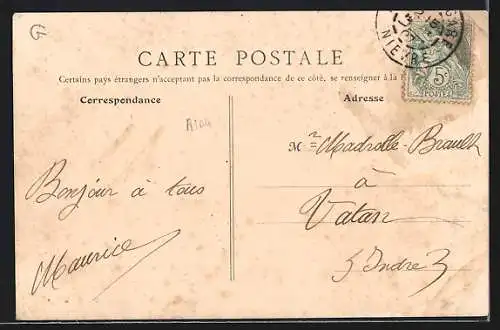 G
CARTE POSTALE
Certains pays étrangers n'acceptant pas la correspondance de ce côté, se renseigner à la
Correspondance
Adresse
NIÈVRE
5c
POSTES
A104
Mr Madrolle-Brault
Bonjour à tous
à
Vatan
Maurice
Indre